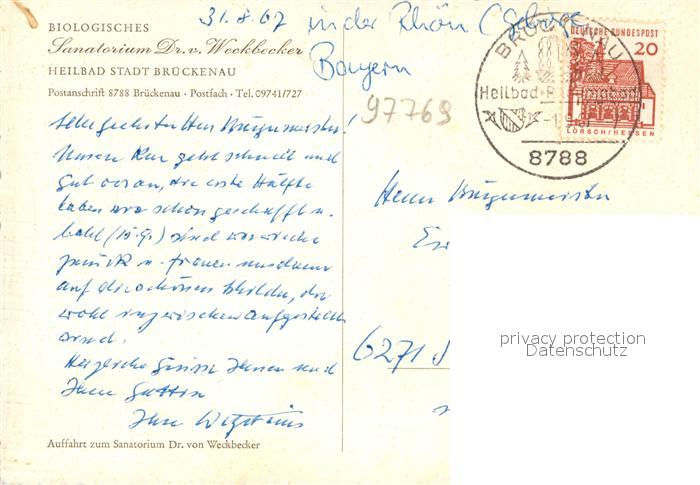 31.8.67 in der Rhön (Gebirge
BIOLOGISCHES
Sanatorium Dr. v. Weckbecker
Bayern
HEILBAD STADT BRÜCKENAU
Postanschrift 8788 Brückenau · Postfach · Tel. 09741/727
97769
BRÜCKENAU
Heilbad
8788
DEUTSCHE BUNDESPOST
20
LORSCH/HESSEN
Sehr geehrter Herr Bürgermeister!
Unsere Kur geht schnell und
gut voran, die erste Hälfte
haben wir schon geschafft u.
bald (15.9.) sind wir wieder
zurück u. freuen uns dann
auf die schönen Bilder, die
wohl inzwischen aufgestellt
sind.
Herzliche Grüße Ihnen und
Ihrer Gattin
Ihre
Herrn Bürgermeister
6271
privacy protection
Datenschutz
Auffahrt zum Sanatorium Dr. von Weckbecker